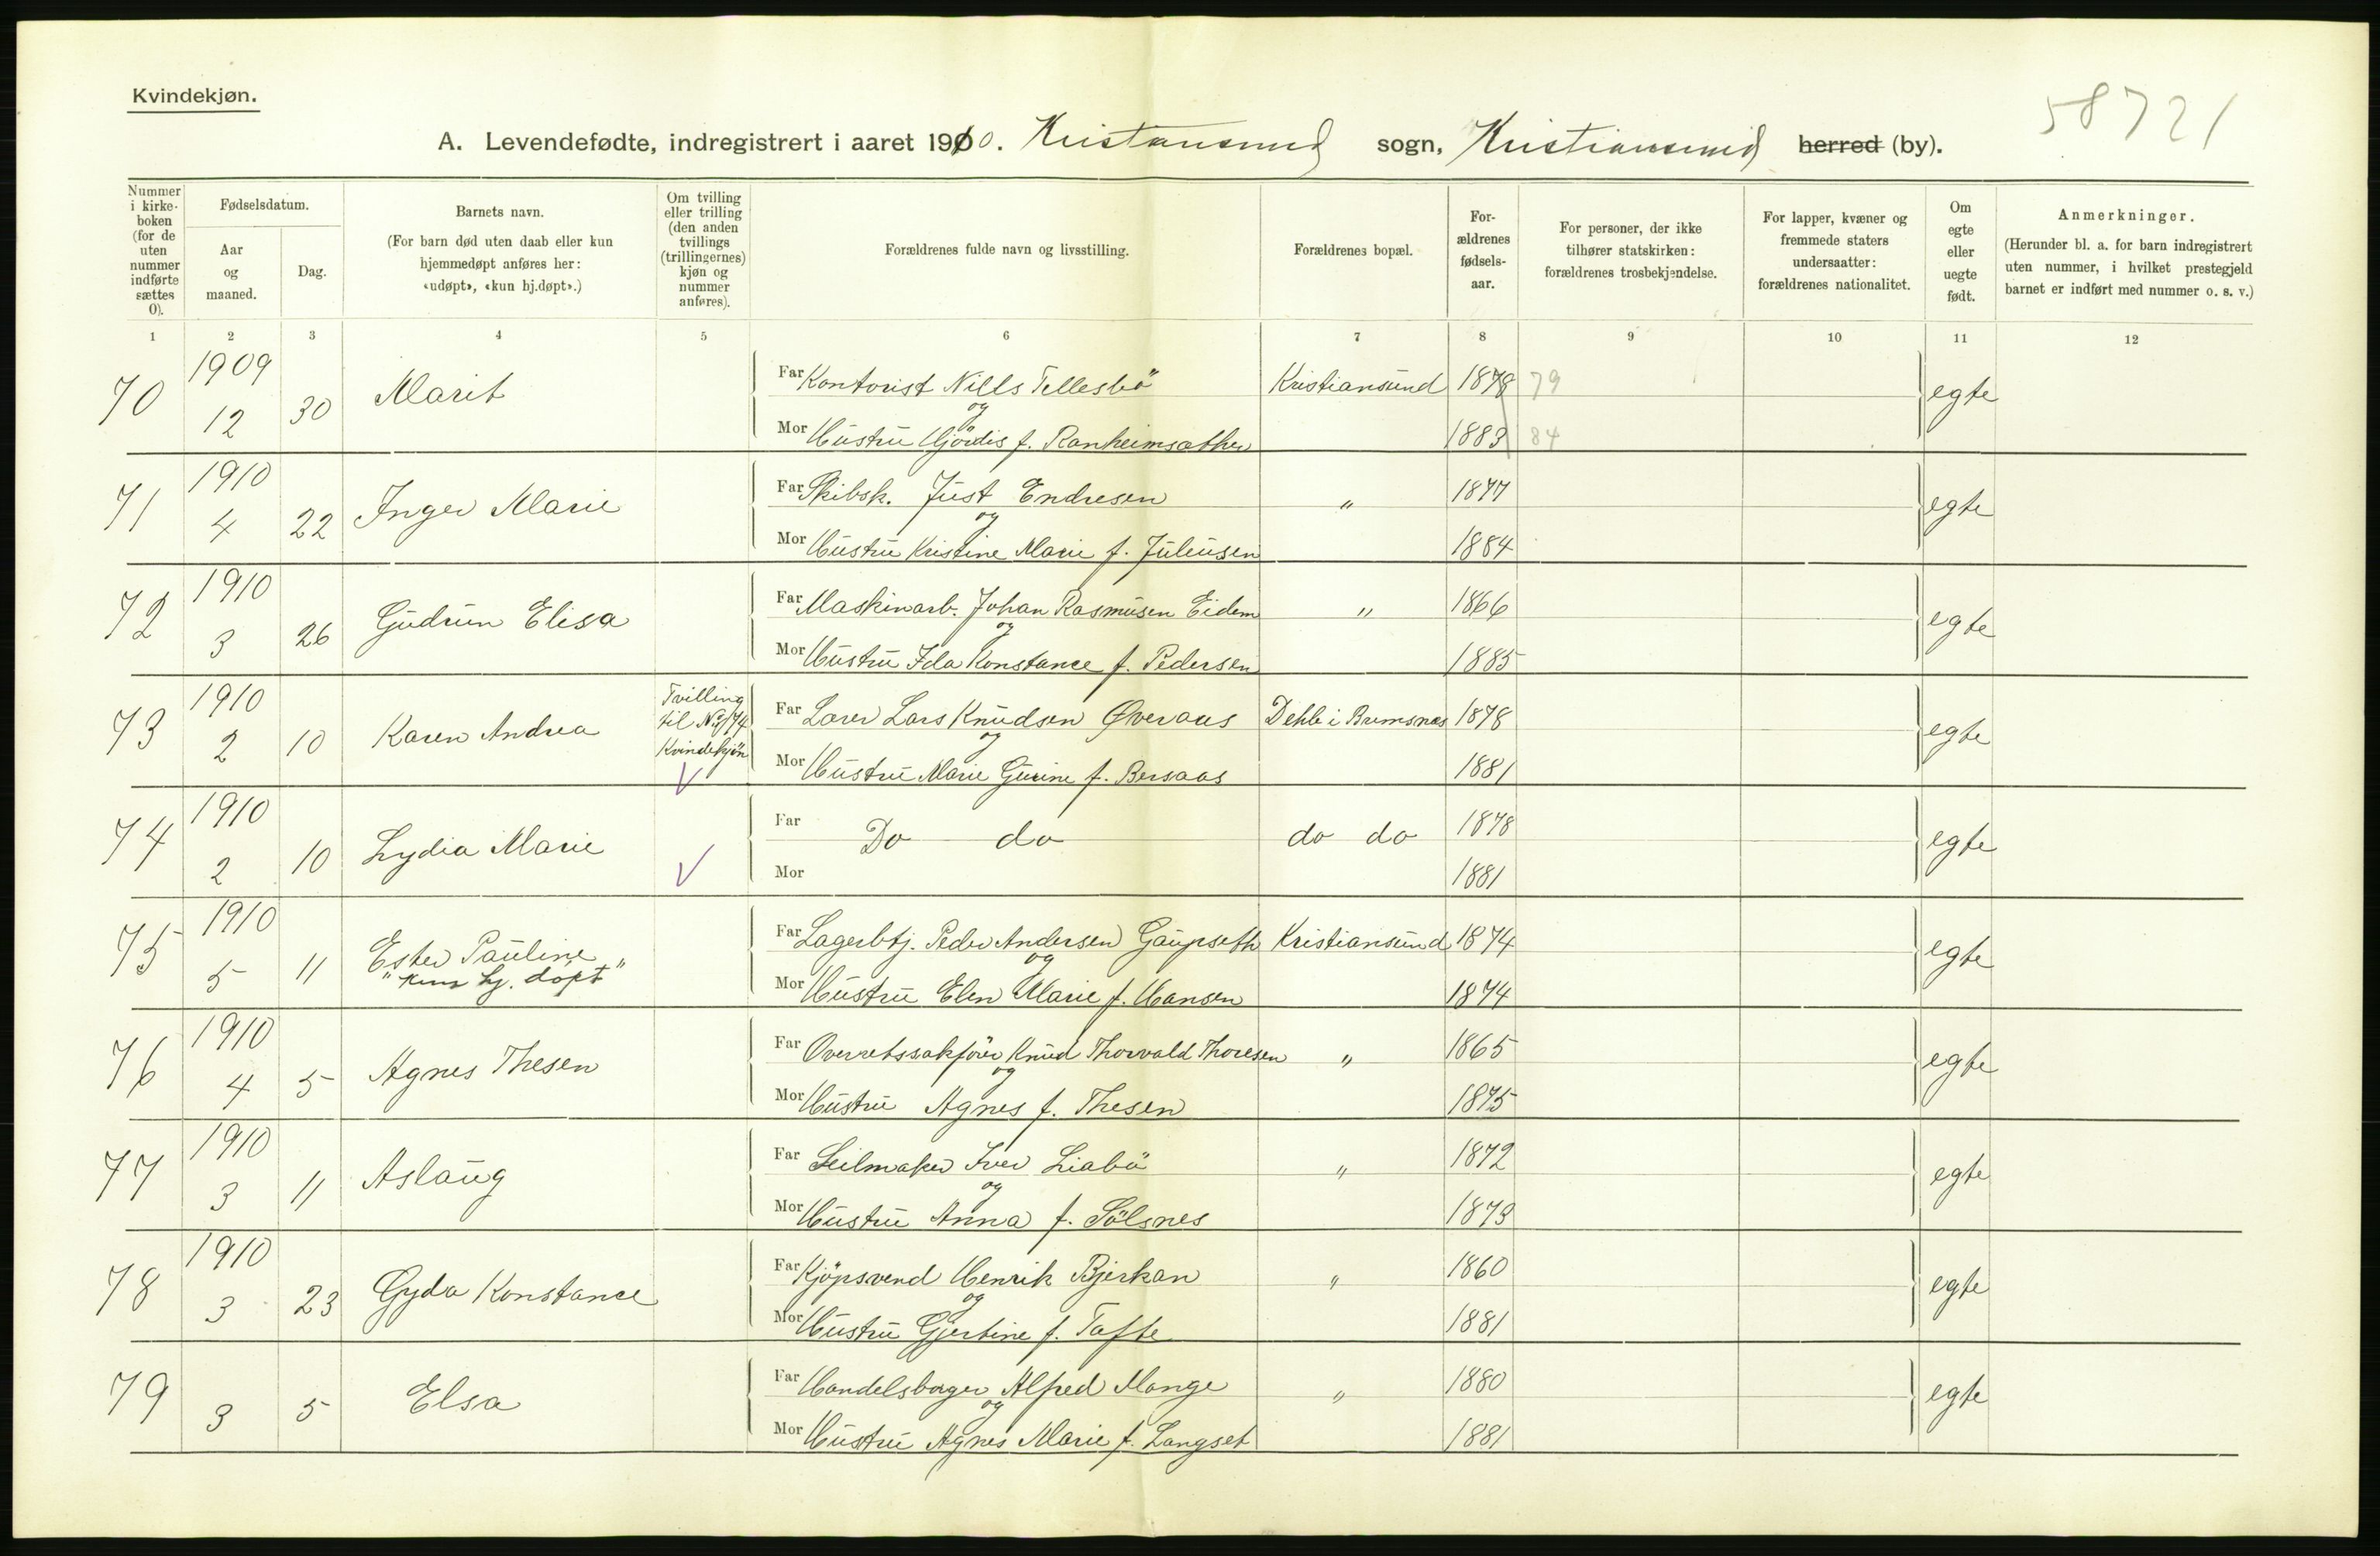 Kvindekjøn.
58721
A. Levendefødte, indregistrert i aaret 1910. Kristiansund sogn, Kristiansund herred (by).
Nummer i kirkeboken (for de uten nummer indførte sættes 0).
Fødselsdatum.
Aar og maaned.
Dag.
Barnets navn.
(For barn død uten daab eller kun hjemmedøpt anføres her: «udøpt», «kun hj.døpt».)
Om tvilling eller trilling (den anden tvillings (trillingernes) kjøn og nummer anføres).
Forældrenes fulde navn og livsstilling.
Forældrenes bopæl.
Forældrenes fødselsaar.
For personer, der ikke tilhører statskirken: forældrenes trosbekjendelse.
For lapper, kvæner og fremmede staters undersaatter: forældrenes nationalitet.
Om egte eller uegte født.
Anmerkninger.
(Herunder bl. a. for barn indregistrert uten nummer, i hvilket prestegjeld barnet er indført med nummer o. s. v.)
1 2 3 4 5 6 7 8 9 10 11 12
70 1909 12 30 Marit
Far Kontorist Nills Tellesbö Kristiansund 1878 79
og
Mor Hustru Hjördis f. Ranheimsæther 1883 84
egte
71 1910 4 22 Inger Marie
Far Skibsk. Just Endresen " 1877
og
Mor Hustru Kristine Marie f. Juliusen 1884
egte
72 1910 3 26 Gudrun Elisa
Far Maskinarb. Johan Rasmusen Eidem " 1866
og
Mor Hustru Ida Konstance f. Pedersen 1885
egte
73 1910 2 10 Karen Andrea
Tvilling til No 74 Kvindekjön
Far Lærer Lars Knudsen Øveraas Dehle i Bremsnes 1878
og
Mor Hustru Marie Gurine f. Bersaas 1881
egte
74 1910 2 10 Lydia Marie
Far Do do do do 1878
Mor 1881
egte
75 1910 5 11 Ester Pauline
"kun hj. döpt"
Far Lagerbtj. Peder Andersen Gaupseth Kristiansund 1874
og
Mor Hustru Elen Marie f. Hansen 1874
egte
76 1910 4 5 Agnes Thesen
Far Overretssakförer Knud Thorvald Thoresen " 1865
og
Mor Hustru Agnes f. Thesen 1875
egte
77 1910 3 11 Aslaug
Far Seilmaker Iver Liabö " 1872
og
Mor Hustru Anna f. Sölsnes 1873
egte
78 1910 3 23 Gyda Konstance
Far Kjöpsvend Henrik Bjerkan " 1860
og
Mor Hustru Gjertine f. Tafte 1881
egte
79 3 5 Elsa
Far Handelsborger Alfred Mange " 1880
og
Mor Hustru Agnes Marie f. Langset 1881
egte